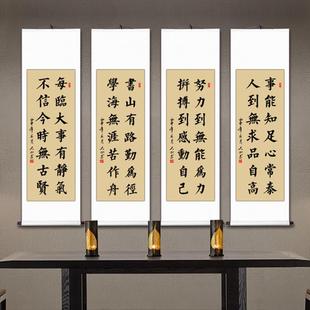 每臨大事有靜氣
不信今時無古賢
書山有路勤為徑
學海無涯苦作舟
努力到無能為力
拼搏到感動自己
事能知足心常泰
人到無求品自高